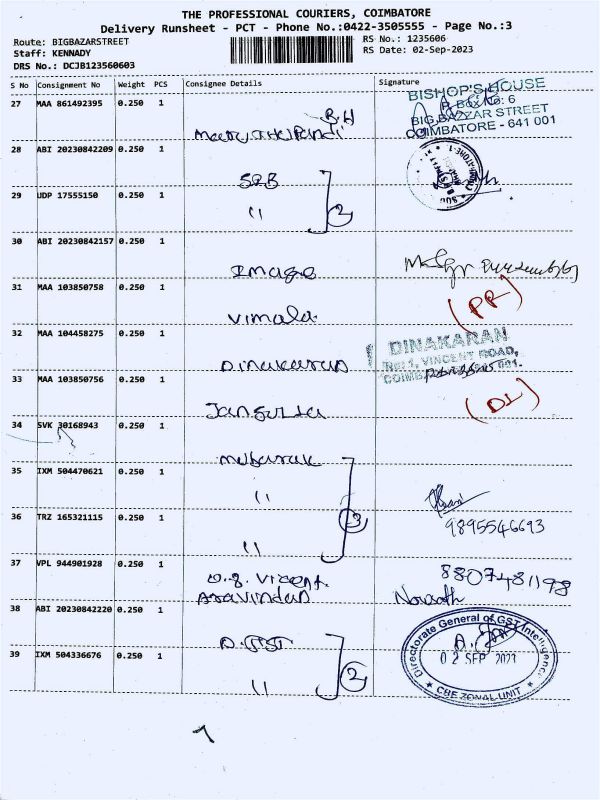 THE PROFESSIONAL COURIERS, COIMBATORE
Delivery Runsheet - PCT - Phone No.:0422-3505555 - Page No.:3
Route: BIGBAZARSTREET
Staff: KENNADY
DRS No.: DCJB123560603
RS No.: 1235606
RS Date: 02-Sep-2023
S No Consignment No Weight PCS Consignee Details Signature
27 MAA 861492395 0.250 1
BISHOP'S HOUSE
P. BOX No: 6
BIG BAZZAR STREET
COIMBATORE - 641 001
28 ABI 20230842209 0.250 1
29 UDP 17555150 0.250 1
" 2
30 ABI 20230842157 0.250 1
Image
31 MAA 103850758 0.250 1
Vimala (PR)
32 MAA 104458275 0.250 1
Dinakaran
DINAKARAN
VINCENT ROAD,
33 MAA 103850756 0.250 1
(DL)
34 SVK 30168943 0.250 1
Mubarak
35 IXM 504470621 0.250 1
"
36 TRZ 165321115 0.250 1
" 3
9895546693
37 VPL 944901928 0.250 1
8807481198
Aravindan
38 ABI 20230842220 0.250 1
Directorate General of GST Intelligence
02 SEP 2023
CBE ZONAL UNIT
39 IXM 504336676 0.250 1
" 2